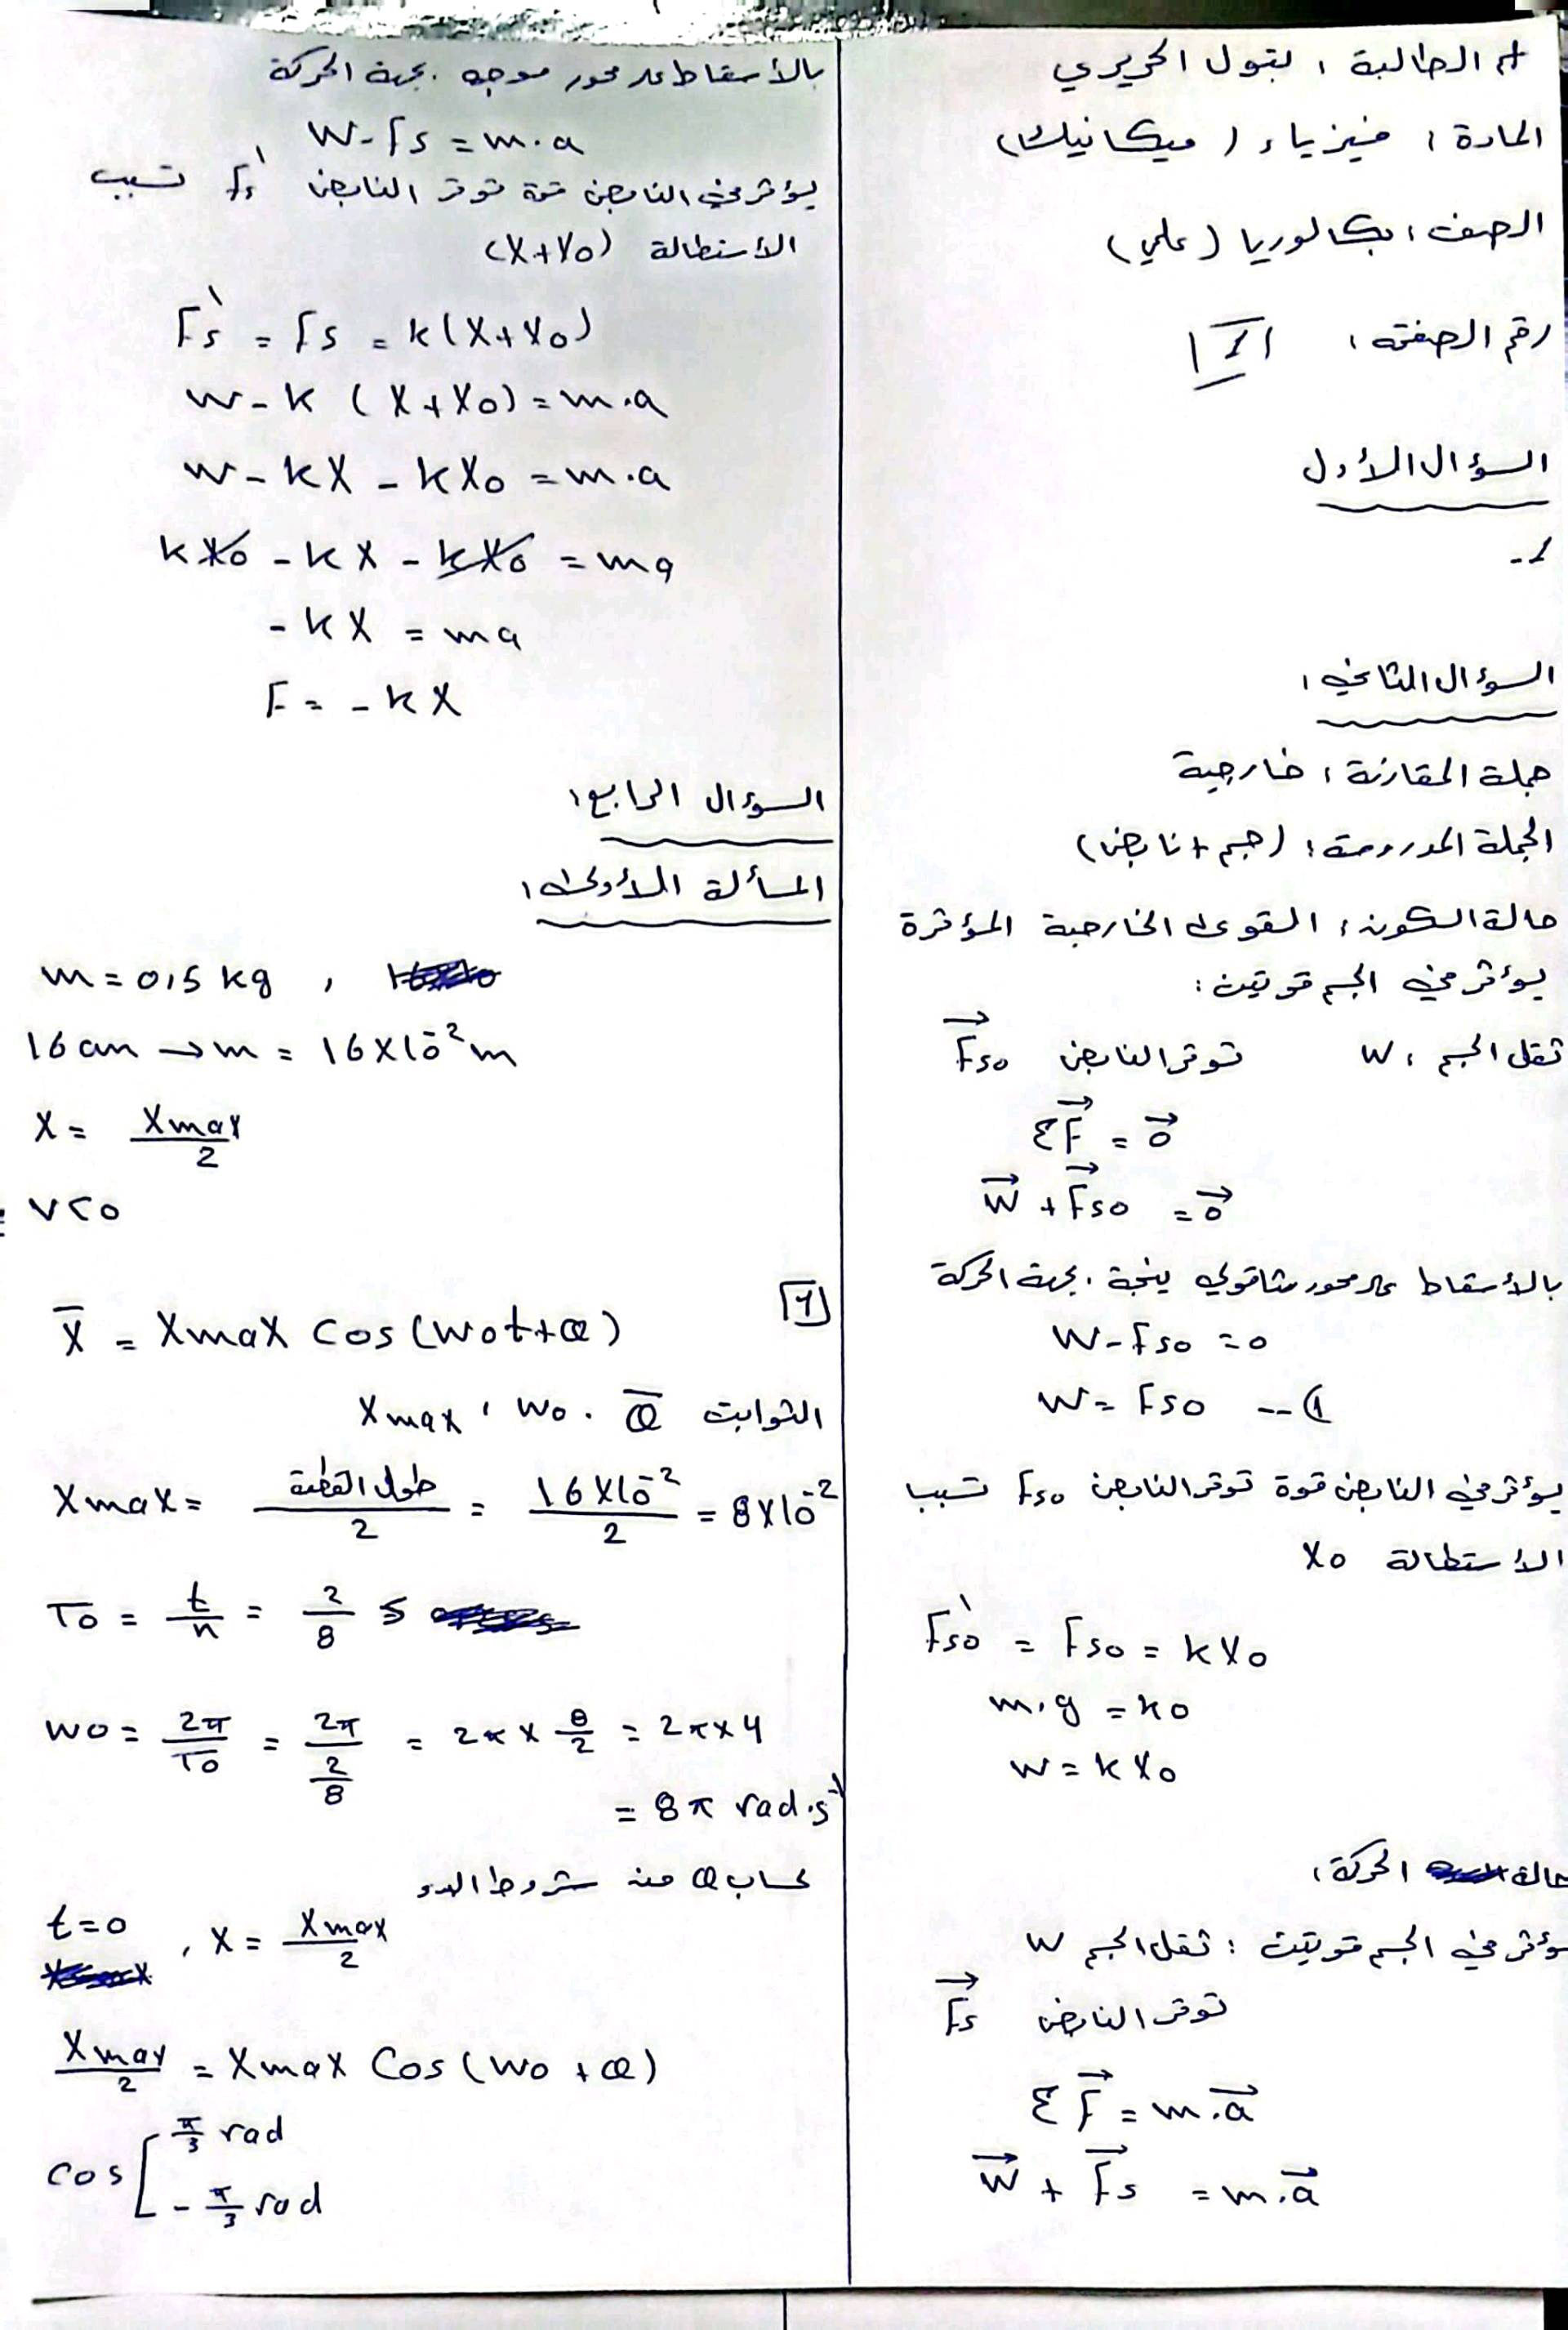 الطالبة : بتول الحريري
المادة : فيزياء (ميكانيك)
الصف : بكالوريا (علمي)
رقم الصفحة : |1|
السؤال الأول
1-
السؤال الثاني :
جملة المقارنة : خارجية
الجملة المدروسة : (جسم + نابض)
حالة السكون : القوى الخارجية المؤثرة
يؤثر في الجسم قوتين :
ثقل الجسم : W توتر النابض Fs0
ΣF = 0
W + Fs0 = 0
بالأسقاط على محور شاقولي يتجة بجهة الحركة
W - Fs0 = 0
W = Fs0 -- (1
يؤثر في النابض قوة توتر النابض Fs0 تسبب
الاستطالة X0
Fs0' = Fs0 = kX0
m.g = x0
W = kX0
حالة الحركة :
يؤثر في الجسم قوتين : ثقل الجسم W
توتر النابض Fs
ΣF = m.a
W + Fs = m.a
بالأسقاط على محور موجه بجهة الحركة
W - Fs = m.a
يؤثر في النابض قوة توتر النابض Fs' تسبب
الأستطالة (X+X0)
Fs' = Fs = k(X+X0)
W - k (X+X0) = m.a
W - kX - kX0 = m.a
kX0 - kX - kX0 = ma
- kX = ma
F = - kX
السؤال الرابع :
المسألة الأولى :
m = 0,5 kg ,
16 cm → m = 16×10⁻² m
X = Xmax / 2
v<0
[1]
X̄ = Xmax cos(ω0t+φ)
الثوابت Xmax , ω0 . φ̄
Xmax = طول القطعة / 2 = 16×10⁻² / 2 = 8×10⁻²
T0 = t/n = 2/8 s
ω0 = 2π/T0 = 2π/(2/8) = 2π × 8/2 = 2π×4
= 8π rad.s⁻¹
لحساب φ من شروط البدء
t=0 , X = Xmax / 2
Xmax / 2 = Xmax cos(ω0 + φ)
cos [ π/3 rad
- π/3 rad